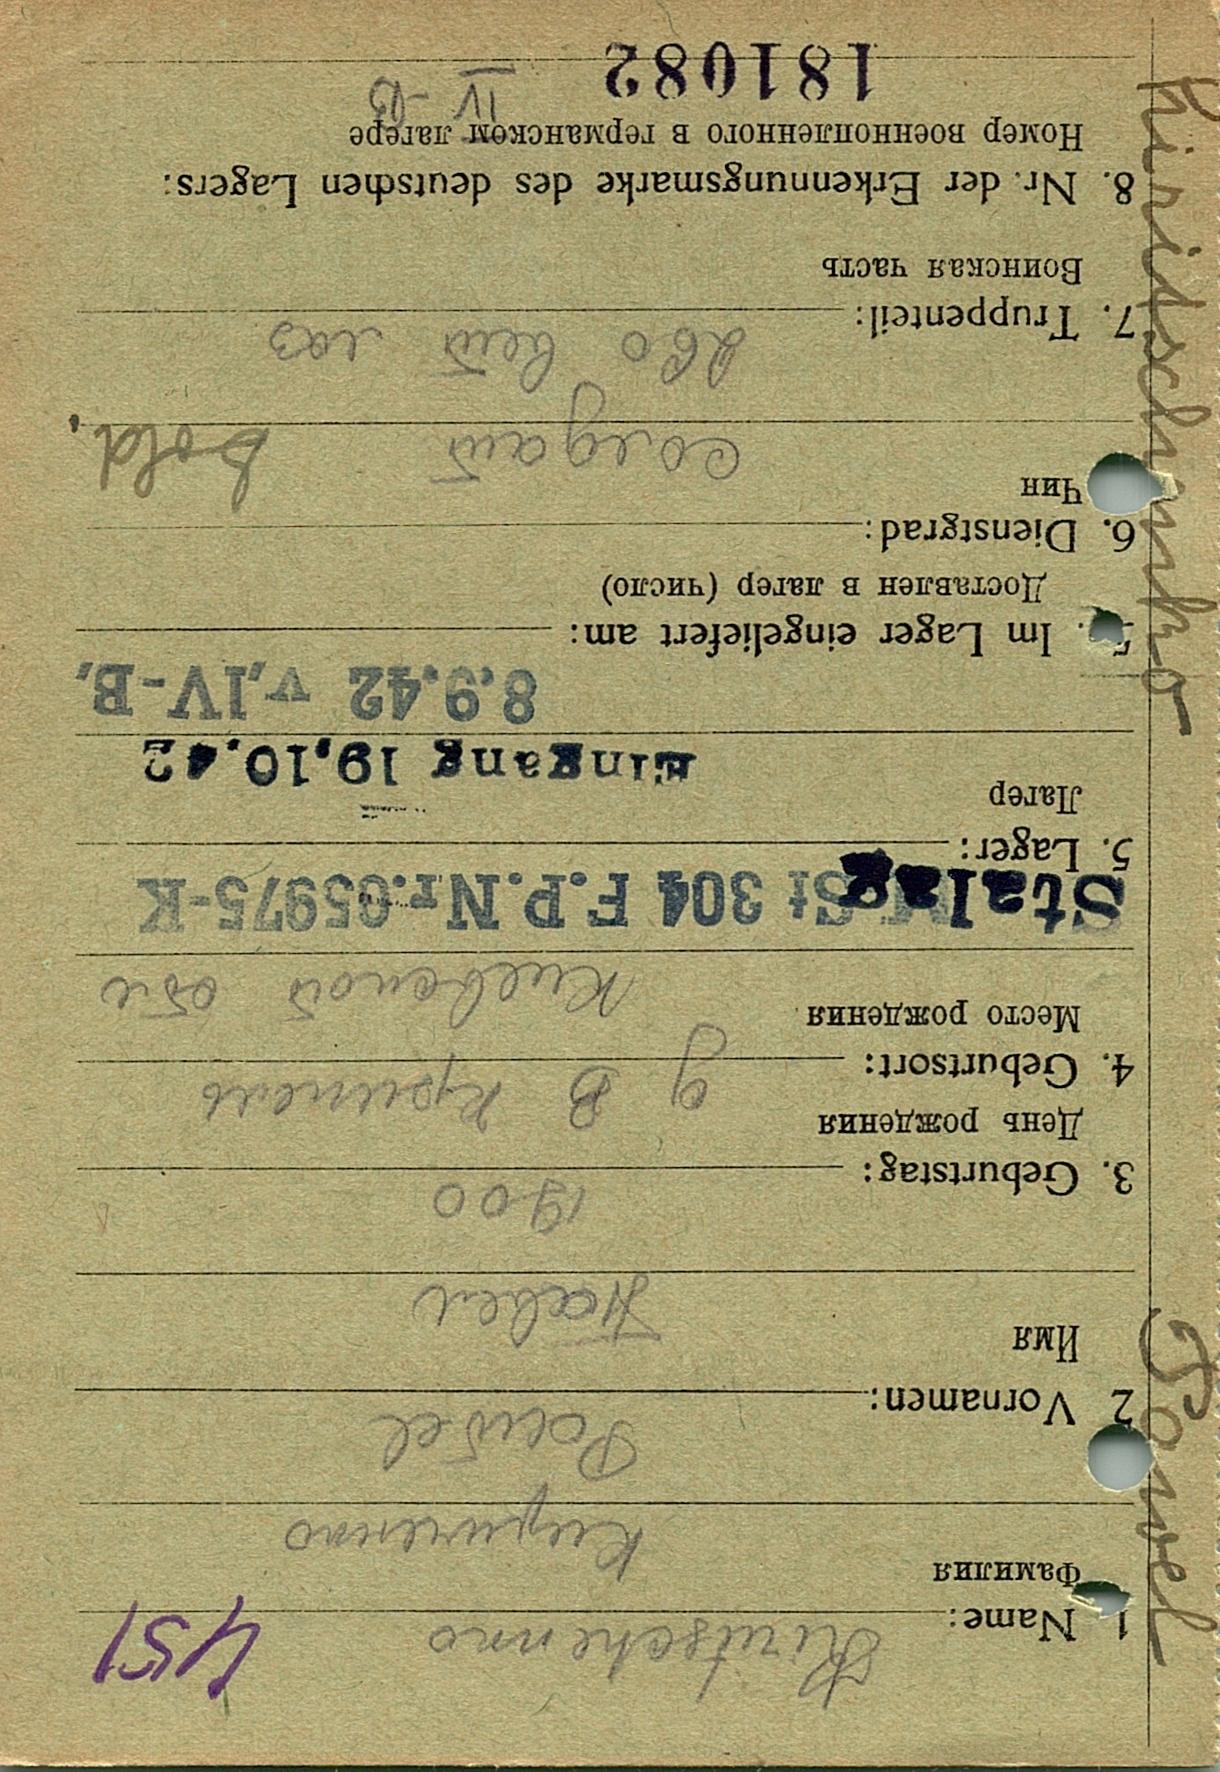 451
1. Name: Kirutschenko
Фамилия
Кириченко
2 Vornamen: Pawel
Имя
Павел
3. Geburtstag: 1900
День рождения
4. Geburtsort: д В
Место рождения
Киевской обл
Stalag 304 F.P.Nr.05975-K
5. Lager:
Лагер
Eingang 19.10.42
8.9.42 v.IV-B.
5. Im Lager eingeliefert am:
Доставлен в лагер (число)
6. Dienstgrad:
Чин
солдат Sold.
7. Truppenteil:
Воинская часть
8. Nr. der Erkennungsmarke des deutschen Lagers:
Номер военнопленного в германском лагере
IV-B
181082
Kiritschenko Pawel